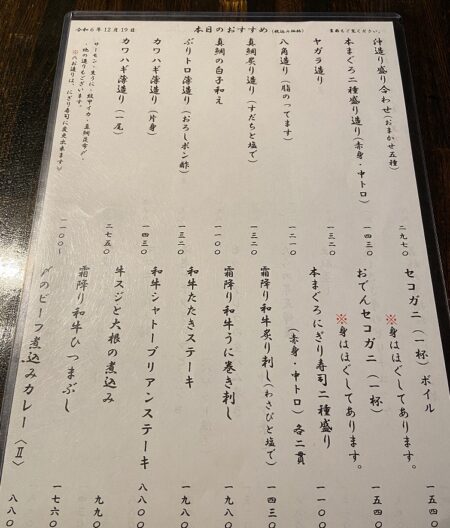 令和6年12月19日
本日のおすすめ(税込み価格)
裏面もご覧ください。
汁造り盛り合わせ(おまかせ五種) 二九七〇
本まぐろ二種盛り造り(赤身・中トロ) 一四三〇
ヤガラ造り 一三二〇
八角造り(脂のってます) 一二一〇
真鯛炙り造り(すだちと塩で) 一三二〇
真鯛の白子和え 一一〇〇
ぶりトロ薄造り(おろしポン酢) 一三二〇
カワハギ薄造り(片身) 一四三〇
カワハギ薄造り(一尾) 二七五〇
サーモン・生うに・紋甲イカ・真鯛昆布〆
他の造りもございます。 一一〇〇~
※八面造りは、にぎり寿司に変更出来ます
セコガニ(一杯)ボイル
※身はほぐしてあります。 一五四〇
おでんセコガニ(一杯)
※身はほぐしてあります。 一五四〇
本まぐろにぎり寿司二種盛り
(赤身・中トロ)各二貫 一一〇〇
霜降り和牛炙り刺し(わさびと塩で) 一四三〇
霜降り和牛うに巻き刺し 一九八〇
和牛たたきステーキ 一九八〇
和牛シャトーブリアンステーキ 八八〇〇
牛スジと大根の煮込み 九九〇
霜降り和牛ひつまぶし 一七六〇
〆のビーフ煮込みカレー〈Ⅱ〉 八八〇